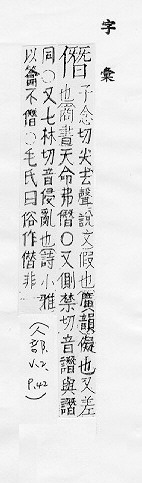 字彙
僭 子念切尖去聲說文假也廣韻儗也又差
也商書天命弗僭○又側禁切音譖與譖
同○又七林切音侵亂也詩小雅
以籥不僭○毛氏曰俗作僣非
(人部.
V.2.
P.42)